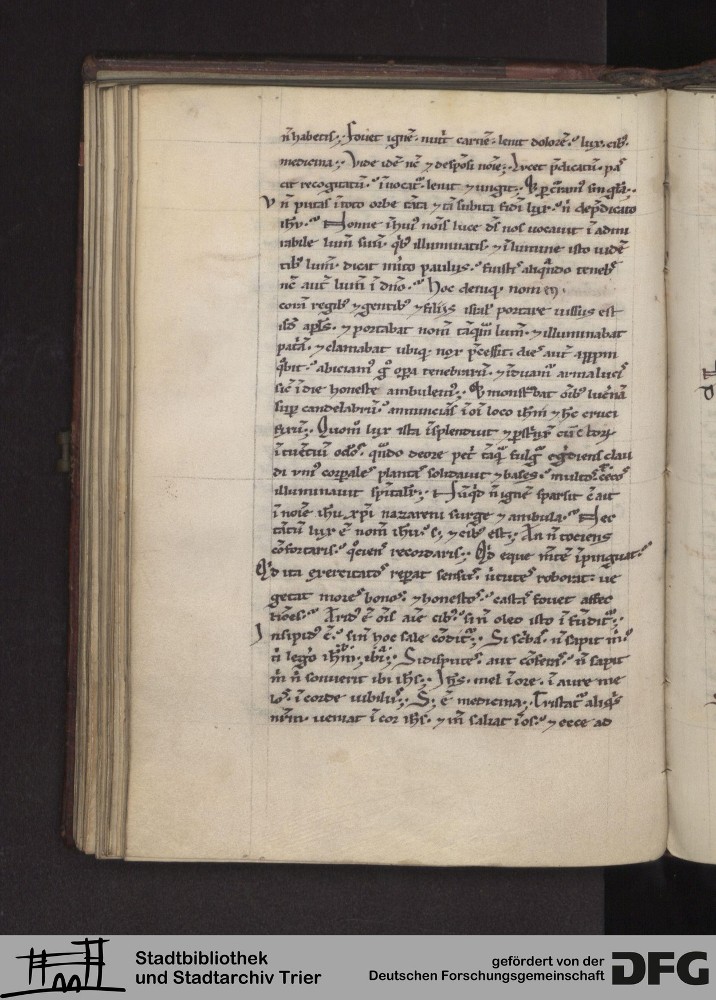 n̄ habetis; Fovet ignē. nut͛t carnē. lenit dolorē. lux. cib᷒.
medicina; Vide idē nc̄ ⁊ de sp̄osi noīe; Lucet p̄dicatū. pa
cit recogitatū. īvocatū. lenit ⁊ ungit;
n̄ putas ī toto orbe tāta ⁊ tā subita fidī lux. n̄ de p̄dicato
ihū. Nonne ī hui᷒ noīs luce ds̄ nos vocavit ī admi
rabile lum̄ suū. qb᷒ illuminatis. ⁊ ī lumine isto vidē
tib᷒ lum̄. dicat m̄ito paulus. fuistis aliqn̄do teneb᷒
nc̄ aut̄ lum̄ ī dn̄o. Hoc deniq; nomen.
corā regib᷒ ⁊ gentib᷒ ⁊ filiis isrl̄ portare iussus est
apls̄. ⁊ portabat nom̄ tāqm̄ lum̄. ⁊ illuminabat
pat͛ā. ⁊ clamabat ubiq; nox p̄cessit. dies aut̄ app̄pin
qbit. abiciam᷒ g̊ opa tenebrarū. ⁊ īduam᷒ arma luc͛
sic̄ ī die honeste ambulem᷒; Et monst͛bat oīb᷒ luc͛nā
sup̄ candelabrū. annuncias ī oī loco ihm̄ ⁊ hc̄ cruci
fixū; Quom̄ lux ista īsplenduit ⁊ p͛strīx̄
ītuentiū oclos. qn̄do de ore pet͛ tāqā fulgur eg̊diens clau
di uni᷒ corpales plantas solidavit ⁊ bases. multos cecos
illuminavit spitalit͛; Nūqd n̄ ignē sparsit c̄ ait
ī noīe ihu xp̄i nazareni surge ⁊ ambula. Nec
tātū lux ē nom̄ ihu. s; ⁊ cib᷒ est; An n̄ tociens
cōfortaris. qciens recordaris; Qd eque mtē īpinguat
Qd ita exercitatos repat sensus. v͛tutes roborat. ve
getat mores bonos. ⁊ honestos. castas fovet affec
tiōes. Arid᷒ ē oīs aīe cib᷒. si n̄ oleo isto īfūdit͛;
Insipid᷒ ē. si n̄ hoc sale cōdit͛; Si sc͛bas. n̄ sapit m̄
n̄ leg̊o ihm̄ ibi; Si disputes. aut cōferas. n̄ sapit
m̄ n̄ sonuerit ibi ihs̄; Ihs̄. mel ī ore. ī aure me
los. ī corde iubilus; S; ē medicina; Tristat͛ aliqs
nrm̄. veniat ī cor ihs̄. ⁊ in̄ saliat ī os. ⁊ ecce ad
Stadtbibliothek
und Stadtarchiv Trier
gefördert von der
Deutschen Forschungsgemeinschaft
DFG